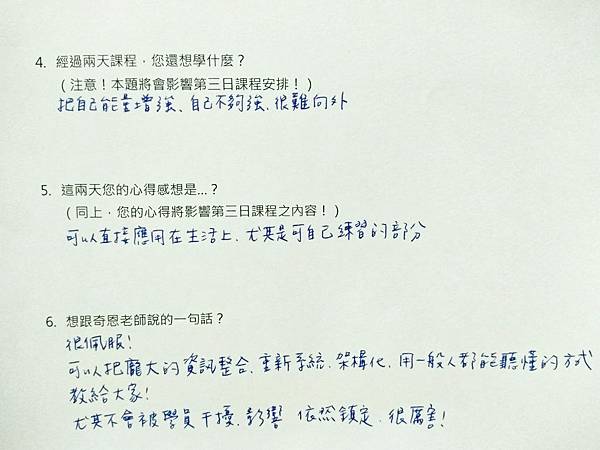 4. 經過兩天課程，您還想學什麼？
（注意！本題將會影響第三日課程安排！）
把自己能量增強、自己不夠強、很難向外
5. 這兩天您的心得感想是...？
（同上，您的心得將影響第三日課程之內容！）
可以直接應用在生活上，尤其是可自己練習的部分
6. 想跟奇恩老師說的一句話？
很佩服！
可以把龐大的資訊整合、重新系統、架構化，用一般人都能聽懂的方式
教給大家！
尤其不會被學員干擾、影響 依然鎮定，很厲害！